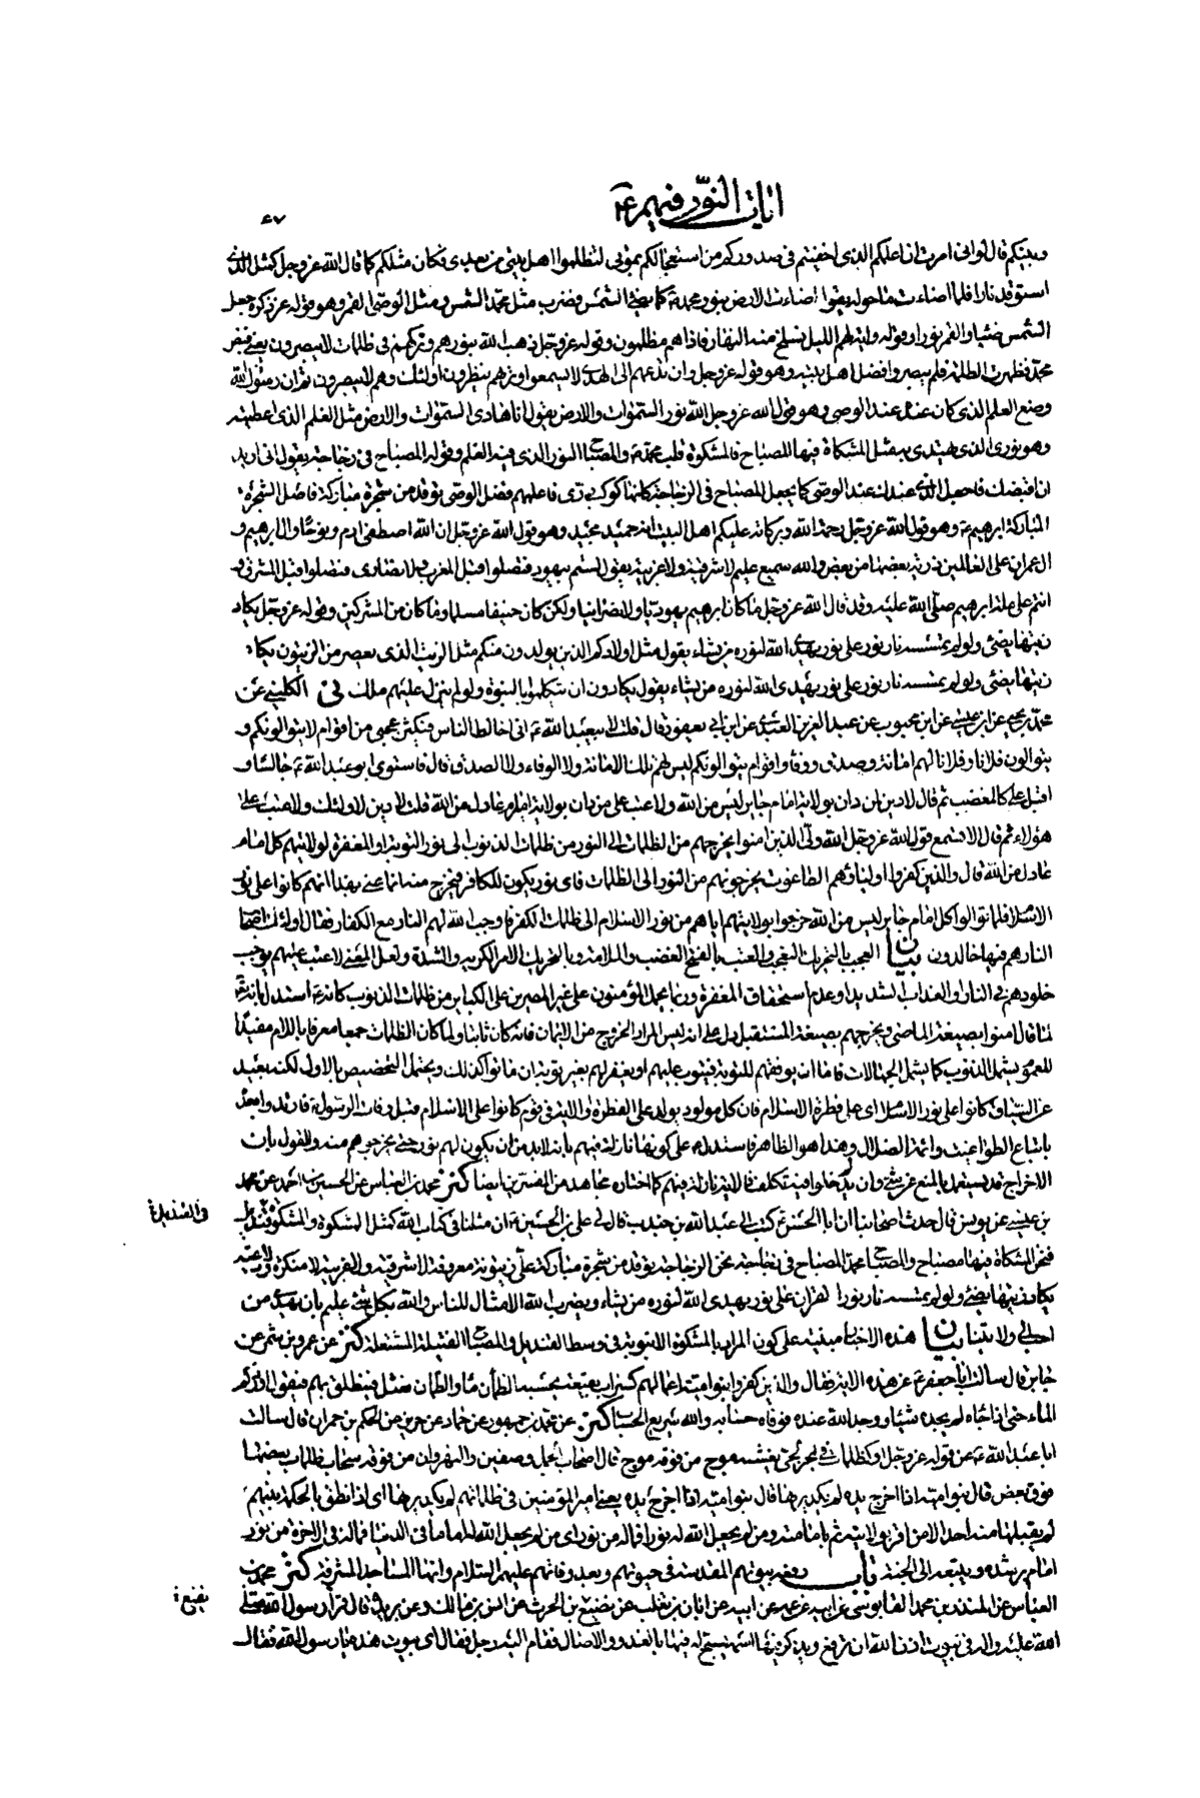 ايات النور فيهم ع
٤٧
وبينكم قال لو اني امرت ان اعلمكم الذي اخفيتم في صدوركم من استعجالكم بموتي لتظلموا اهل بيتي من بعدي فكان مثلكم كما قال الله عز وجل كمثل الذي
استوقد نارا فلما اضاءت ما حوله يقول اضاءت الارض بنور محمد كما تضيء الشمس فضرب مثل محمد الشمس ومثل الوصي القمر وهو قوله عز ذكره جعل
الشمس ضياء والقمر نورا وقوله واية لهم الليل نسلخ منه النهار فاذا هم مظلمون وقوله عز وجل ذهب الله بنورهم وتركهم في ظلمات لا يبصرون يعني قبض
محمد فظهرت الظلمة فلم يبصروا فضل اهل بيته وهو قوله عز وجل وان تدعهم الى الهدى لا يسمعوا وتراهم ينظرون اليك وهم لا يبصرون ثم ان رسول الله
وضع العلم الذي كان عنده عند الوصي وهو قول الله عز وجل الله نور السموات والارض يقول انا هادي السموات والارض مثل العلم الذي اعطيته
وهو نوري الذي يهتدى به مثل المشكاة فيها المصباح فالمشكوة قلب محمد والمصباح النور الذي فيه العلم وقوله المصباح في زجاجة يقول اني اريد
ان اقبضك فاجعل الذي عندك عند الوصي كما يجعل المصباح في الزجاجة كانها كوكب دري فاعلمهم فضل الوصي توقد من شجرة مباركة فاصل الشجرة
المباركة ابرهيم ع وهو قول الله عز وجل رحمة الله وبركاته عليكم اهل البيت انه حميد مجيد وهو قول الله عز وجل ان الله اصطفى ادم ونوحا وال ابرهيم و
ال عمران على العالمين ذرية بعضها من بعض والله سميع عليم لا شرقية ولا غربية يقول لستم بيهود فتصلوا قبل المغرب ولا نصارى فتصلوا قبل المشرق و
انتم على ملة ابرهيم صلى الله عليه وقد قال الله عز وجل ما كان ابرهيم يهوديا ولا نصرانيا ولكن كان حنيفا مسلما وما كان من المشركين وقوله عز وجل يكاد
زيتها يضئ ولو لم تمسسه نار نور على نور يهدي الله لنوره من يشاء يقول مثل اولادكم الذين يولدون منكم مثل الزيت الذي يعصر من الزيتون يكاد
زيتها يضئ ولو لم تمسسه نار نور على نور يهدي الله لنوره من يشاء يقول يكادون ان يتكلموا بالنبوة ولو لم ينزل عليهم ملك في الكليني عن
عن ابن محبوب عن عبد العزيز العبدي عن ابن ابي يعفور قال قلت لابيعبد الله ع اني اخالط الناس فيكثر عجبي من اقوام لا يتولونكم و
يتوالون فلانا وفلانا لهم امانة وصدق ووفاء واقوام يتولونكم ليس لهم تلك الامانة ولا الوفاء ولا الصدق قال فاستوى ابو عبد الله ع جالسا و
اقبل علي كالمغضب ثم قال لا دين لمن دان بولاية امام جاير ليس من الله ولا عتب على من دان بولاية امام عادل من الله قلت لا دين لاولئك ولا عتب على
هؤلاء ثم قال الا تسمع قول الله عز وجل الله ولي الذين امنوا يخرجهم من الظلمات الى النور من ظلمات الذنوب الى نور التوبة او المغفرة لولايتهم كل امام
عادل من الله قال والذين كفروا اولياؤهم الطاغوت يخرجونهم من النور الى الظلمات فاي نور يكون للكافر فيخرج منه انما عنى بهذا انهم كانوا على نور
الاسلام فلما توالوا كل امام جاير ليس من الله خرجوا بولايتهم اياهم من نور الاسلام الى ظلمات الكفر فاوجب الله لهم النار مع الكفار فقال اولئك اصحاب
النار هم فيها خالدون بيان العجب بالتحريك التعجب والعتب بالفتح الغضب والملامة وبالتحريك الامر الكريه والشدة ولعل المعنى لا عتب عليهم يوجب
خلودهم في النار او العذاب الشديد او عدم استحقاق المغفرة وربما يحمل المؤمنون على غير المصرين على الكباير من ظلمات الذنوب كانه ع استدل بانه تعالى
لما قال امنوا بصيغة الماضي ويخرجهم بصيغة المستقبل دل على انه ليس المراد الخروج من الايمان فانه كان ثابتا ولما كان الظلمات جمعا معرفا باللام مفيدا
للعموم يشمل الذنوب كما يشمل الجهالات فاما ان يوفقهم للتوبة فيتوب عليهم او يغفر لهم بغير توبة ان ماتوا كذلك ويحتمل التخصيص بالاول لكنه بعيد
عن السياق كانوا على نور الاسلام اي على فطرة الاسلام فان كل مولود يولد على الفطرة والاية في قوم كانوا على الاسلام قبل وفات الرسول ص فارتدوا بعده
باتباع الطواغيت وائمة الضلال وهذا هو الظاهر فاستدل ع على كونها نازلة فيهم بانه لابد من ان يكون لهم نور حتى يخرجوهم منه والقول بان
الاخراج قد يستعمل بالمنع عن شيء وان لم يدخلوا فيه تكلف فالاية نازلة فيهم كما اختاره مجاهد من المفسرين ايضا كنز محمد بن العباس عن الحسين بن احمد عن محمد
بن عيسى عن يونس قال حدث اصحابنا ان ابا الحسن ع كتب الى عبد الله بن جندب قال لي علي بن الحسين ع ان مثلنا في كتاب الله كمثل المشكوة والمشكوة في القنديل
في القنديل
فنحن المشكاة فيها مصباح والمصباح محمد المصباح في زجاجة نحن الزجاجة توقد من شجرة مباركة علي زيتونة معروفة لا شرقية ولا غربية لا منكرة ولا دعية
يكاد زيتها يضئ ولو لم تمسسه نار نور القران على نور يهدي الله لنوره من يشاء ويضرب الله الامثال للناس والله بكل شئ عليم بان يهدي من
احب الى ولايتنا بيان هذه الاخبار مبنية على كون المراد بالمشكوة الانبوبة في وسط القنديل والمصباح الفتيلة المشتعلة كنز عن عمرو بن شمر عن
جابر قال سالت ابا جعفر ع عن هذه الاية فقال والذين كفروا بنو امية اعمالهم كسراب بقيعة يحسبه الظمأن ماء والظمان نعثل فينطلق بهم فيقول اوردكم
الماء حتى اذا جاءه لم يجده شيئا ووجد الله عنده فوفاه حسابه والله سريع الحساب كنز عن محمد بن جمهور عن حماد عن حريز عن الحكم بن حمران قال سالت
ابا عبد الله ع عن قوله عز وجل او كظلمات في بحر لجي يغشه موج من فوقه موج قال اصحاب الجمل وصفين والنهروان من فوقه سحاب ظلمات بعضها
فوق بعض قال بنو امية اذا اخرج يده لم يكد يرها قال بنو امية اذا اخرج يده يعني امير المؤمنين في ظلماتهم لم يكد يرها اي اذا نطق بالحكمة بينهم
لم يقبلها منه احد الا من اقر بولايته ثم بامامته ومن لم يجعل الله له نورا فما له من نور اي من لم يجعل الله له اماما في الدنيا فما له في الاخرة من نور
امام يرشده ويتبعه الى الجنة باب رفعة بيوتهم المقدسة في حيوتهم وبعد وفاتهم عليهم السلام وانها المساجد المشرفة كنز محمد بن
العباس عن المنذر بن محمد القابوسي عن ابيه عن عمه عن ابيه عن ابان بن تغلب عن نضيع بن الحرث عن انس بن مالك وعن بريدة قال قرأ رسول الله صلى
نفيع
الله عليه واله في بيوت اذن الله ان ترفع ويذكر فيها اسمه يسبح له فيها بالغدو والاصال فقام اليه رجل فقال اي بيوت هذه يا رسول الله فقال